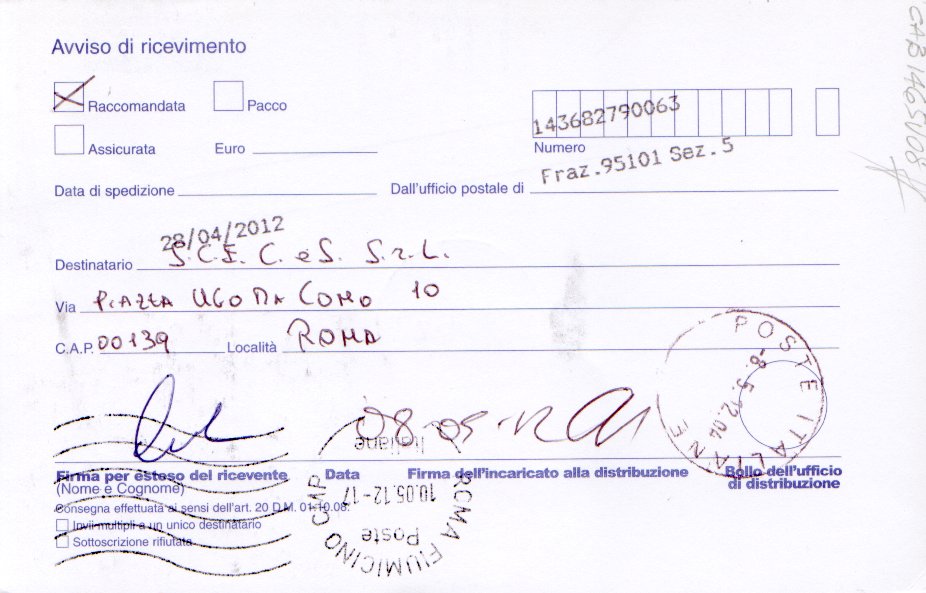 Avviso di ricevimento
Raccomandata Pacco
143682790063
Assicurata Euro Numero
Fraz.95101 Sez.5
Data di spedizione Dall'ufficio postale di
28/04/2012
Destinatario S.C.I. C. e S. S.r.L.
Via PIAZZA UGO DA COMO 10
C.A.P. 00139 Località ROMA
POSTE ITALIANE
-8.5.12.04
08-05-12
Firma per esteso del ricevente Data Firma dell'incaricato alla distribuzione Bollo dell'ufficio
(Nome e Cognome) di distribuzione
Consegna effettuata ai sensi dell'art. 20 D.M. 01-10-08:
Invii multipli a un unico destinatario
Sottoscrizione rifiutata
Poste
Italiane
10.05.12-17
ROMA FIUMICINO CMP